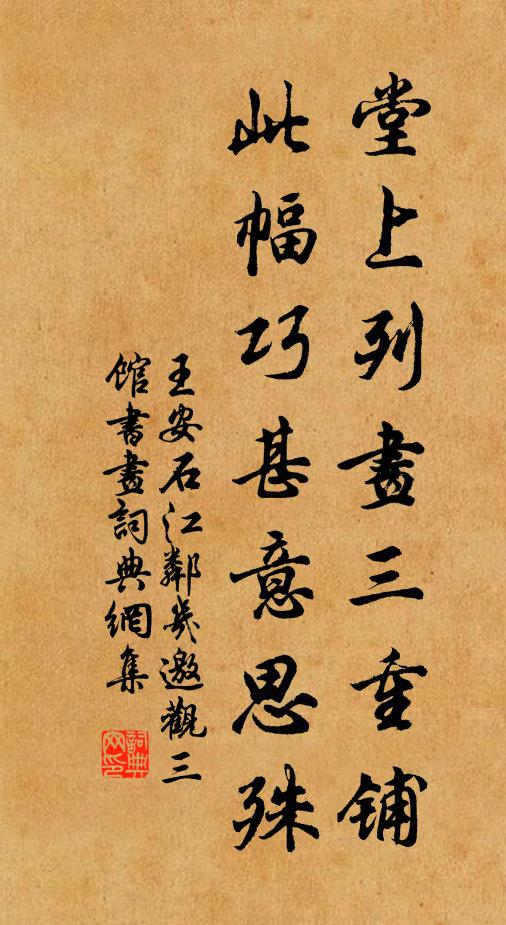 堂上列畫三重鋪
此幅巧甚意思殊
王安石江鄰幾邀觀三
館書畫詞典網集
詞典網印